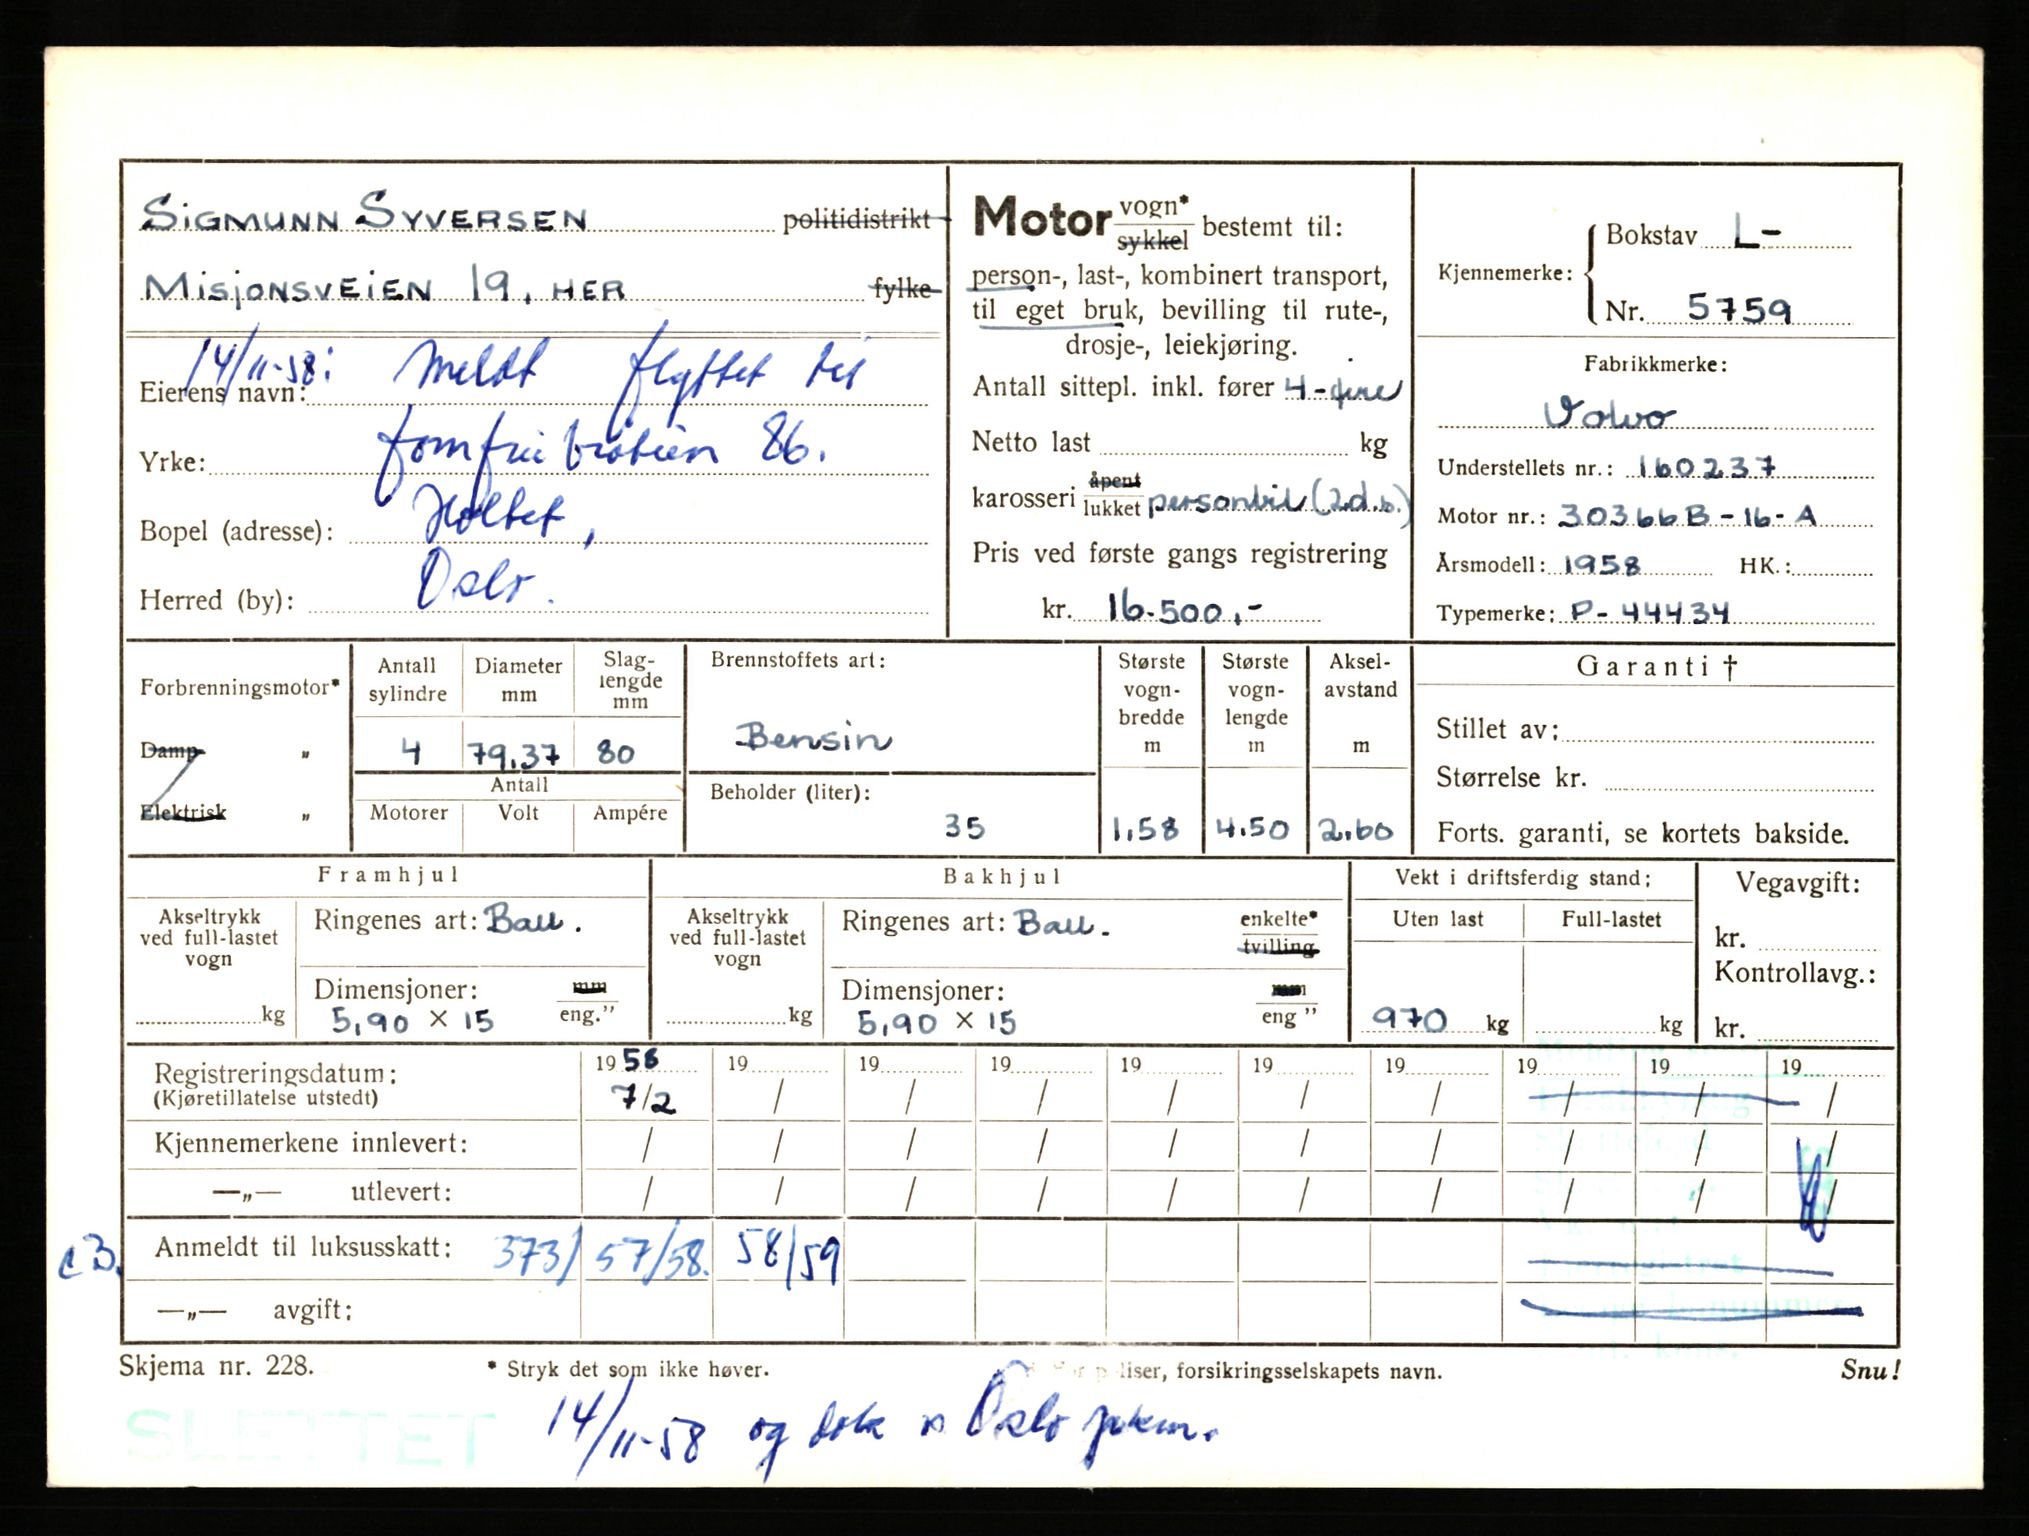 SIGMUNN SYVERSEN politidistrikt
MISJONSVEIEN 19, HER fylke
14/11-58: Meldt flyttet til
Eierens navn:
Yrke: 86.
Bopel (adresse): Holtet,
Herred (by): Oslo.
Motor vogn* sykkel bestemt til:
person-, last-, kombinert transport,
til eget bruk, bevilling til rute-,
drosje-, leiekjøring.
Antall sittepl. inkl. fører 4-fire
Netto last kg
karosseri åpent lukket personbil (2d.b.)
Pris ved første gangs registrering
kr. 16.500,-
Kjennemerke: Bokstav L-
Nr. 5759
Fabrikkmerke:
Volvo
Understellets nr.: 160237
Motor nr.: 30366B-16-A
Årsmodell: 1958 HK.:
Typemerke: P-44434
Forbrenningsmotor*
Damp „
Elektrisk „
Antall sylindre Diameter mm Slag-lengde mm
4 79,37 80
Antall
Motorer Volt Ampére
Brennstoffets art:
Bensin
Beholder (liter):
35
Største vogn-bredde m
1.58
Største vogn-lengde m
4.50
Aksel-avstand m
2.60
Garanti †
Stillet av:
Størrelse kr.
Forts. garanti, se kortets bakside.
Framhjul
Akseltrykk ved full-lastet vogn
kg
Ringenes art: Ball.
Dimensjoner: mm
5,90 × 15 eng.”
Bakhjul
Akseltrykk ved full-lastet vogn
kg
Ringenes art: Ball. enkelte*
tvilling
Dimensjoner: mm
5,90 × 15 eng ”
Vekt i driftsferdig stand:
Uten last Full-lastet
970 kg kg
Vegavgift:
kr.
Kontrollavg.:
kr.
Registreringsdatum: 19 58 19 19 19 19 19 19 19 19 19
(Kjøretillatelse utstedt) 7/2 / / / / / / / / /
Kjennemerkene innlevert: / / / / / / / / / /
—„— utlevert: / / / / / / / / / /
Anmeldt til luksusskatt: 373/ 57/58. 58/59
—„— avgift:
Skjema nr. 228. * Stryk det som ikke høver. liser, forsikringsselskapets navn. Snu!
SLETTET
14/11-58 og Oslo